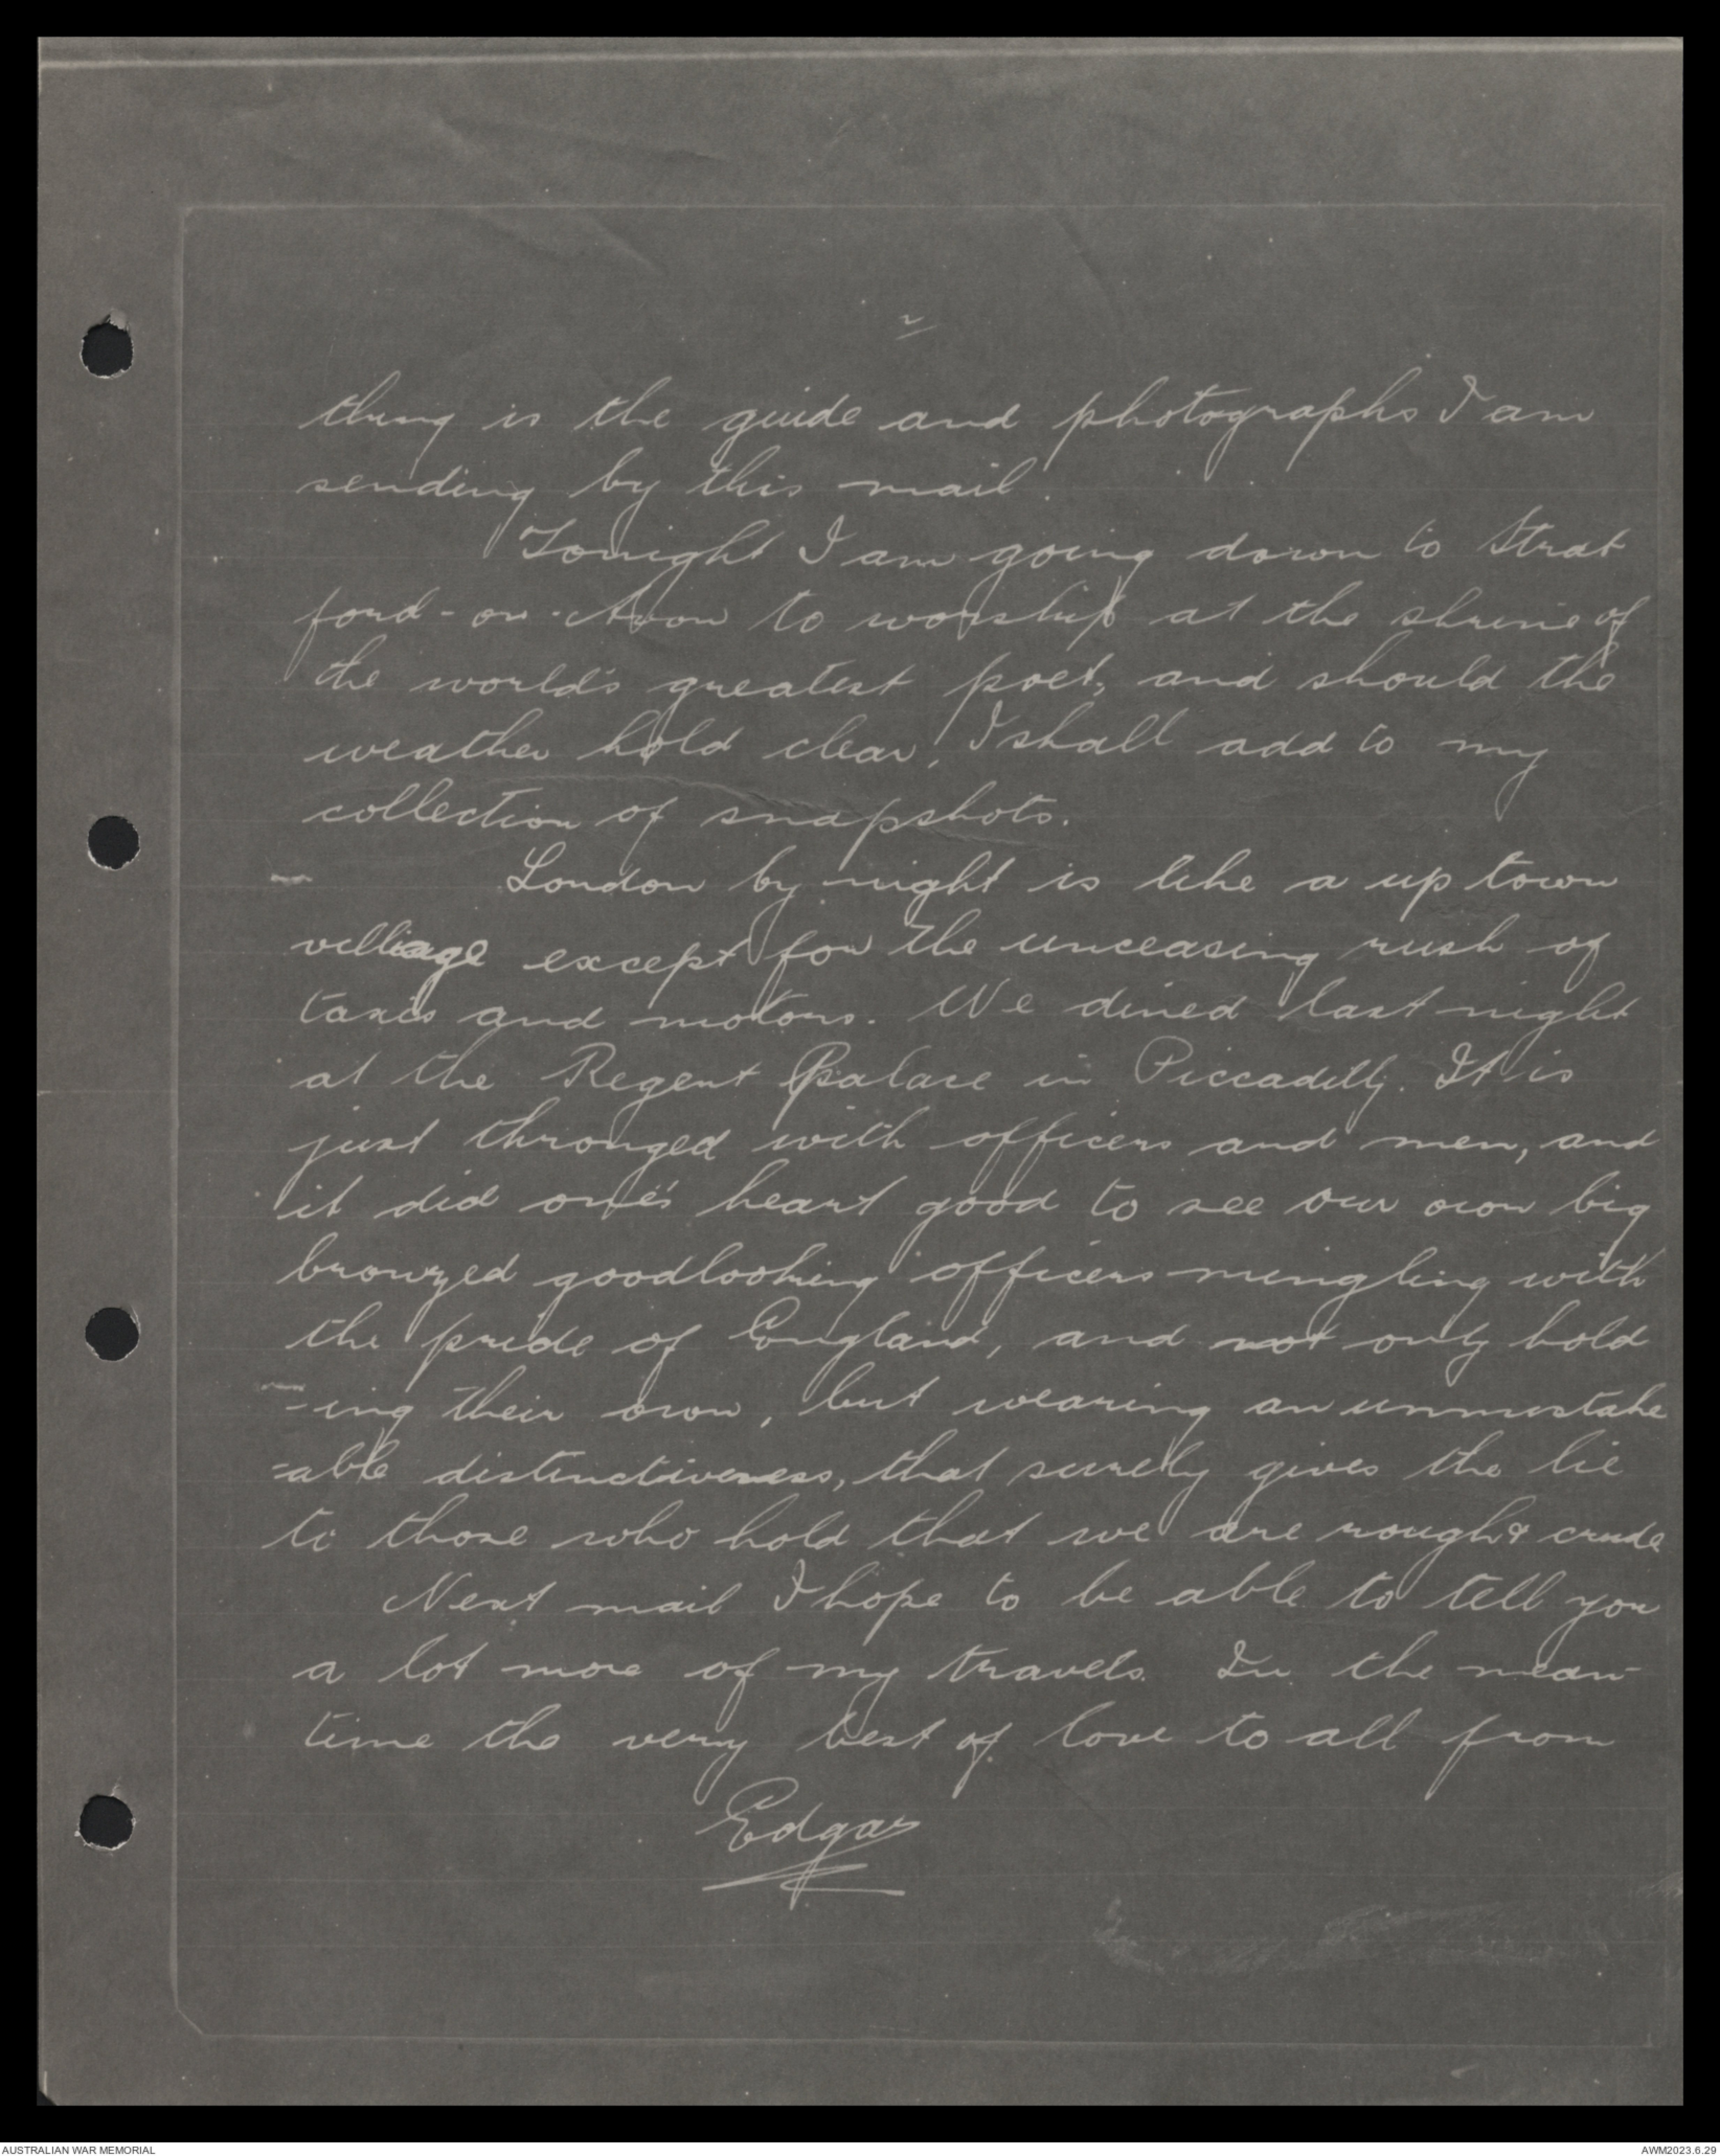 2
thing is the guide and photographs I am
sending by this mail.
Tonight I am going down to Strat
ford-on-Avon to worship at the shrine of
the world's greatest poet, and should the
weather hold clear, I shall add to my
collection of snapshots.
London by night is like a up town
village except for the unceasing rush of
taxis and motors. We dined last night
at the Regent Palace in Piccadilly. It is
just thronged with officers and men, and
it did one's heart good to see our own big
bronzed goodlooking officers mingling with
the pride of England, and not only hold
-ing their own, but wearing an unmistake
=able distinctiveness, that surely gives the lie
to those who hold that we are rough & crude
Next mail I hope to be able to tell you
a lot more of my travels. In the mean-
time the very best of love to all from
Edgar
AUSTRALIAN WAR MEMORIAL
AWM2023.6.29